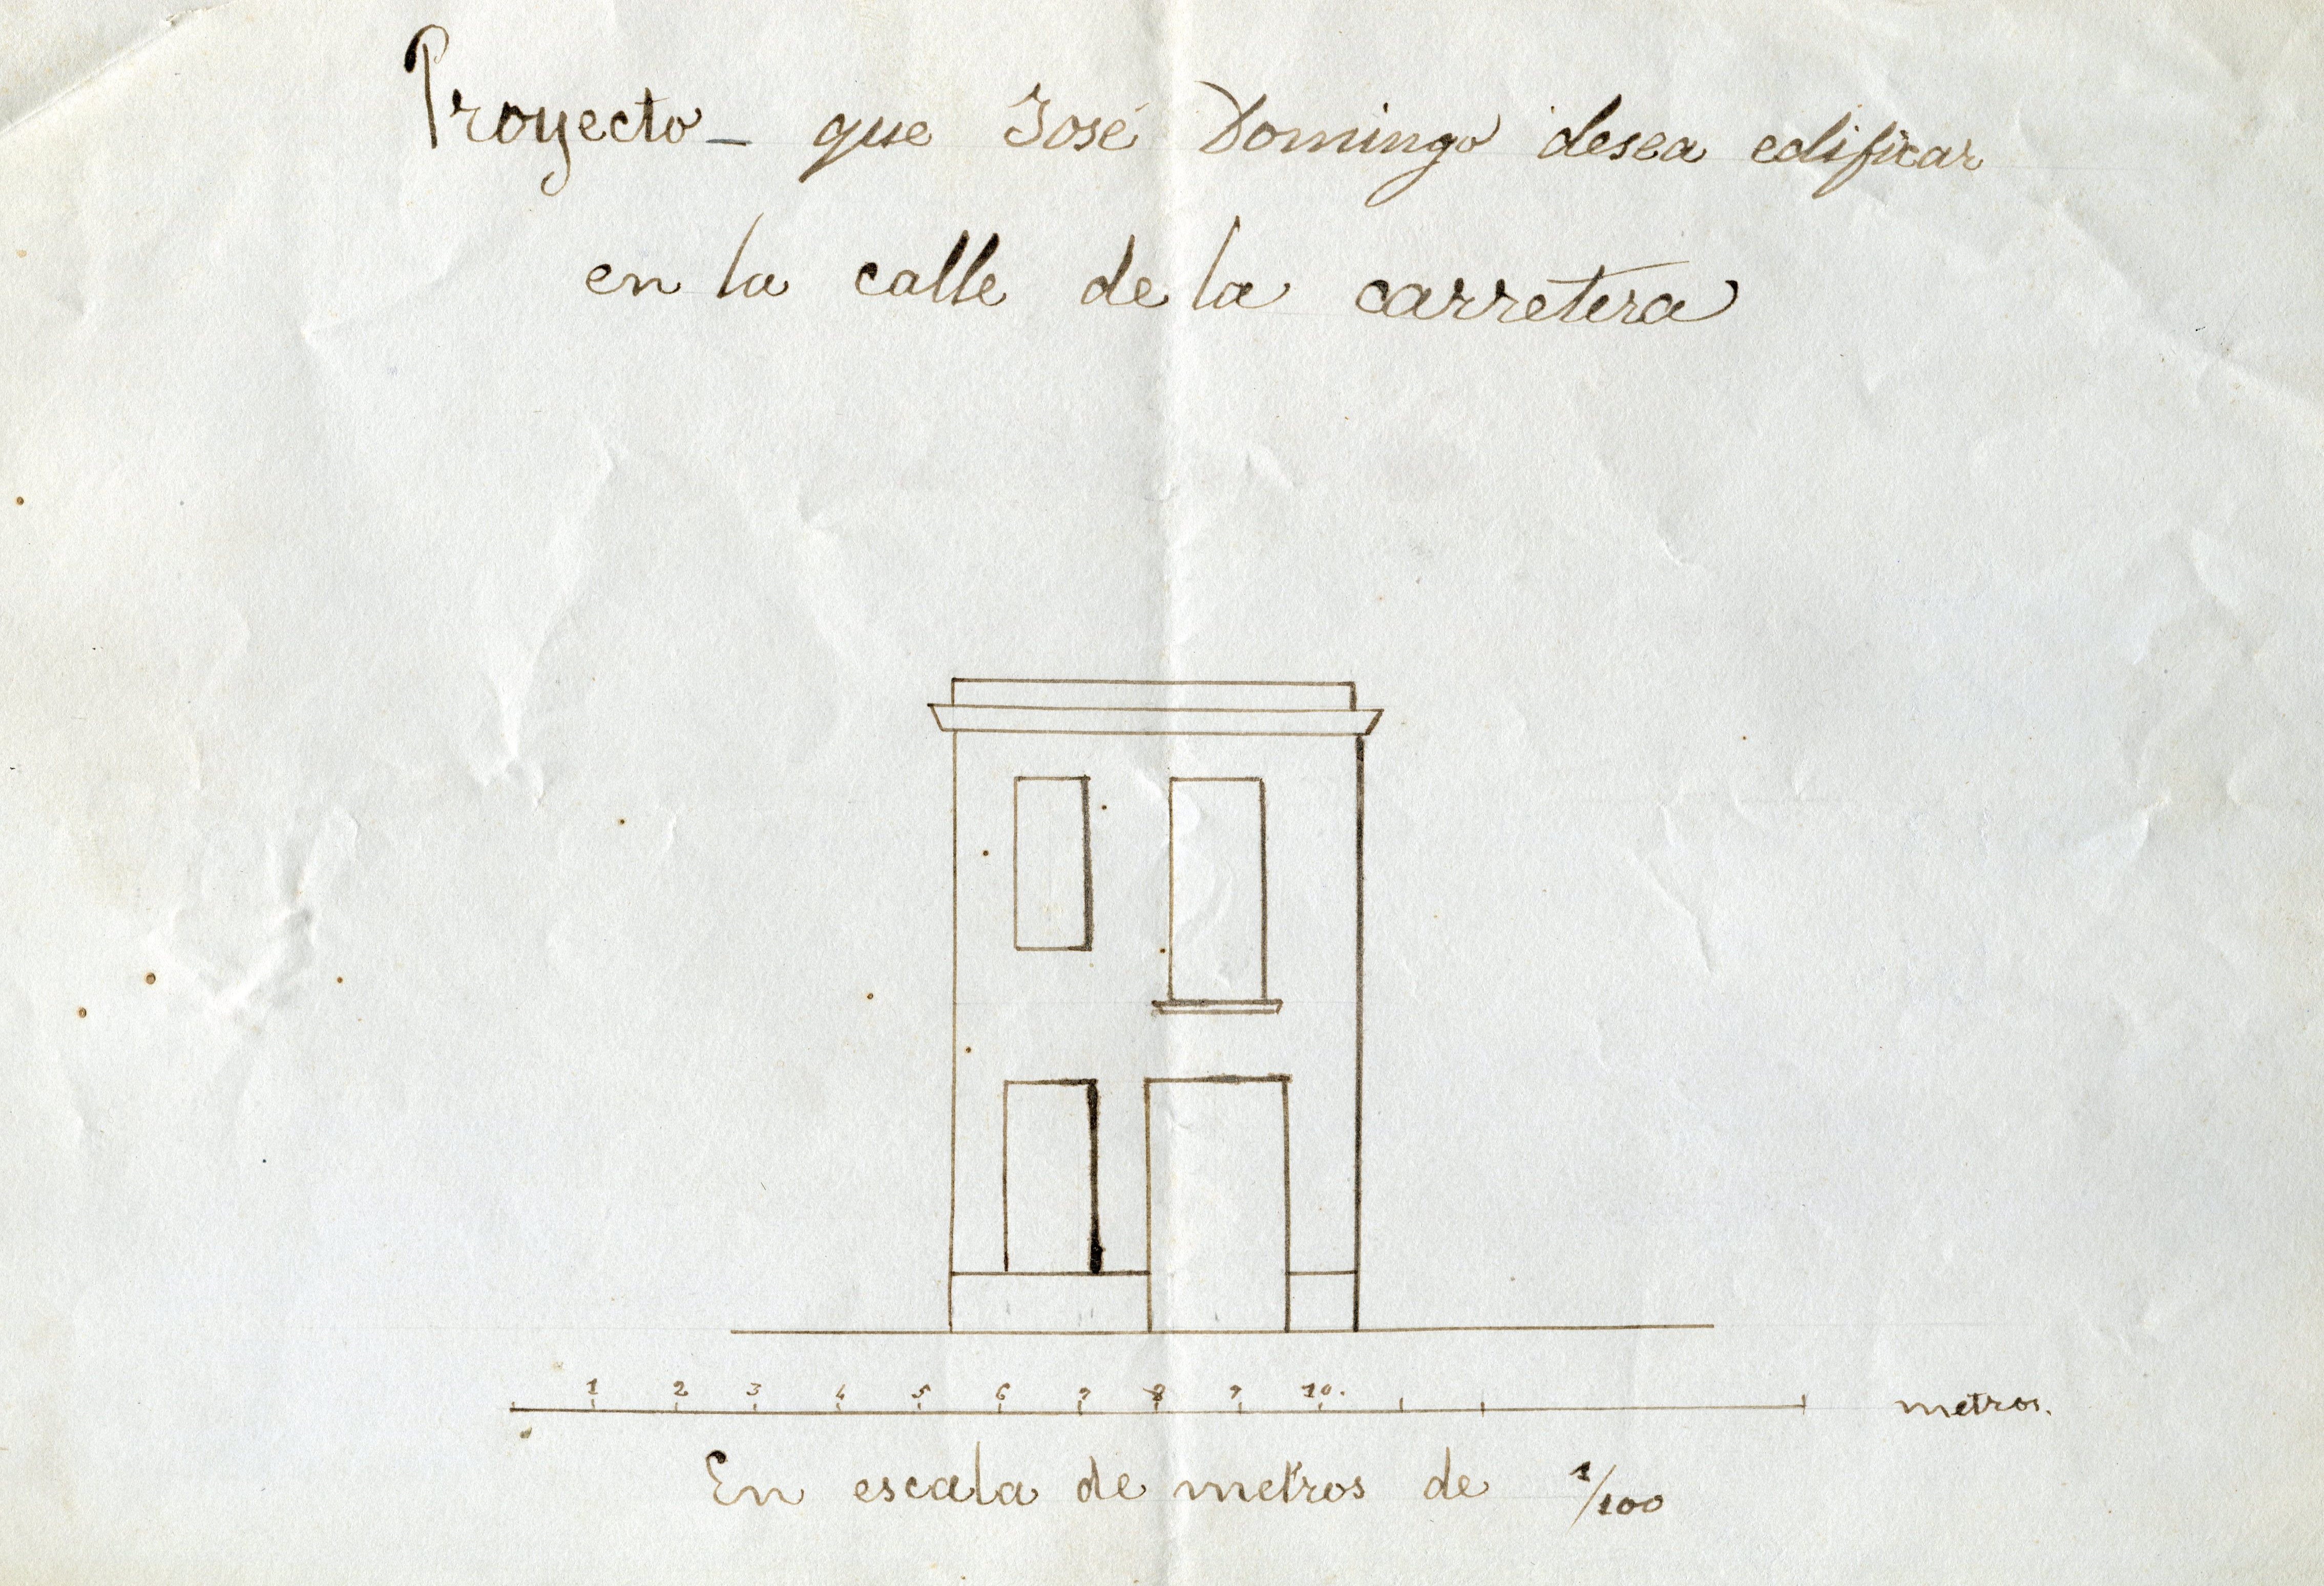 Proyecto - que José Domingo desea edificar
en la calle de la carretera
1 2 3 4 5 6 7 8 9 10. metros.
En escala de metros de 1/100